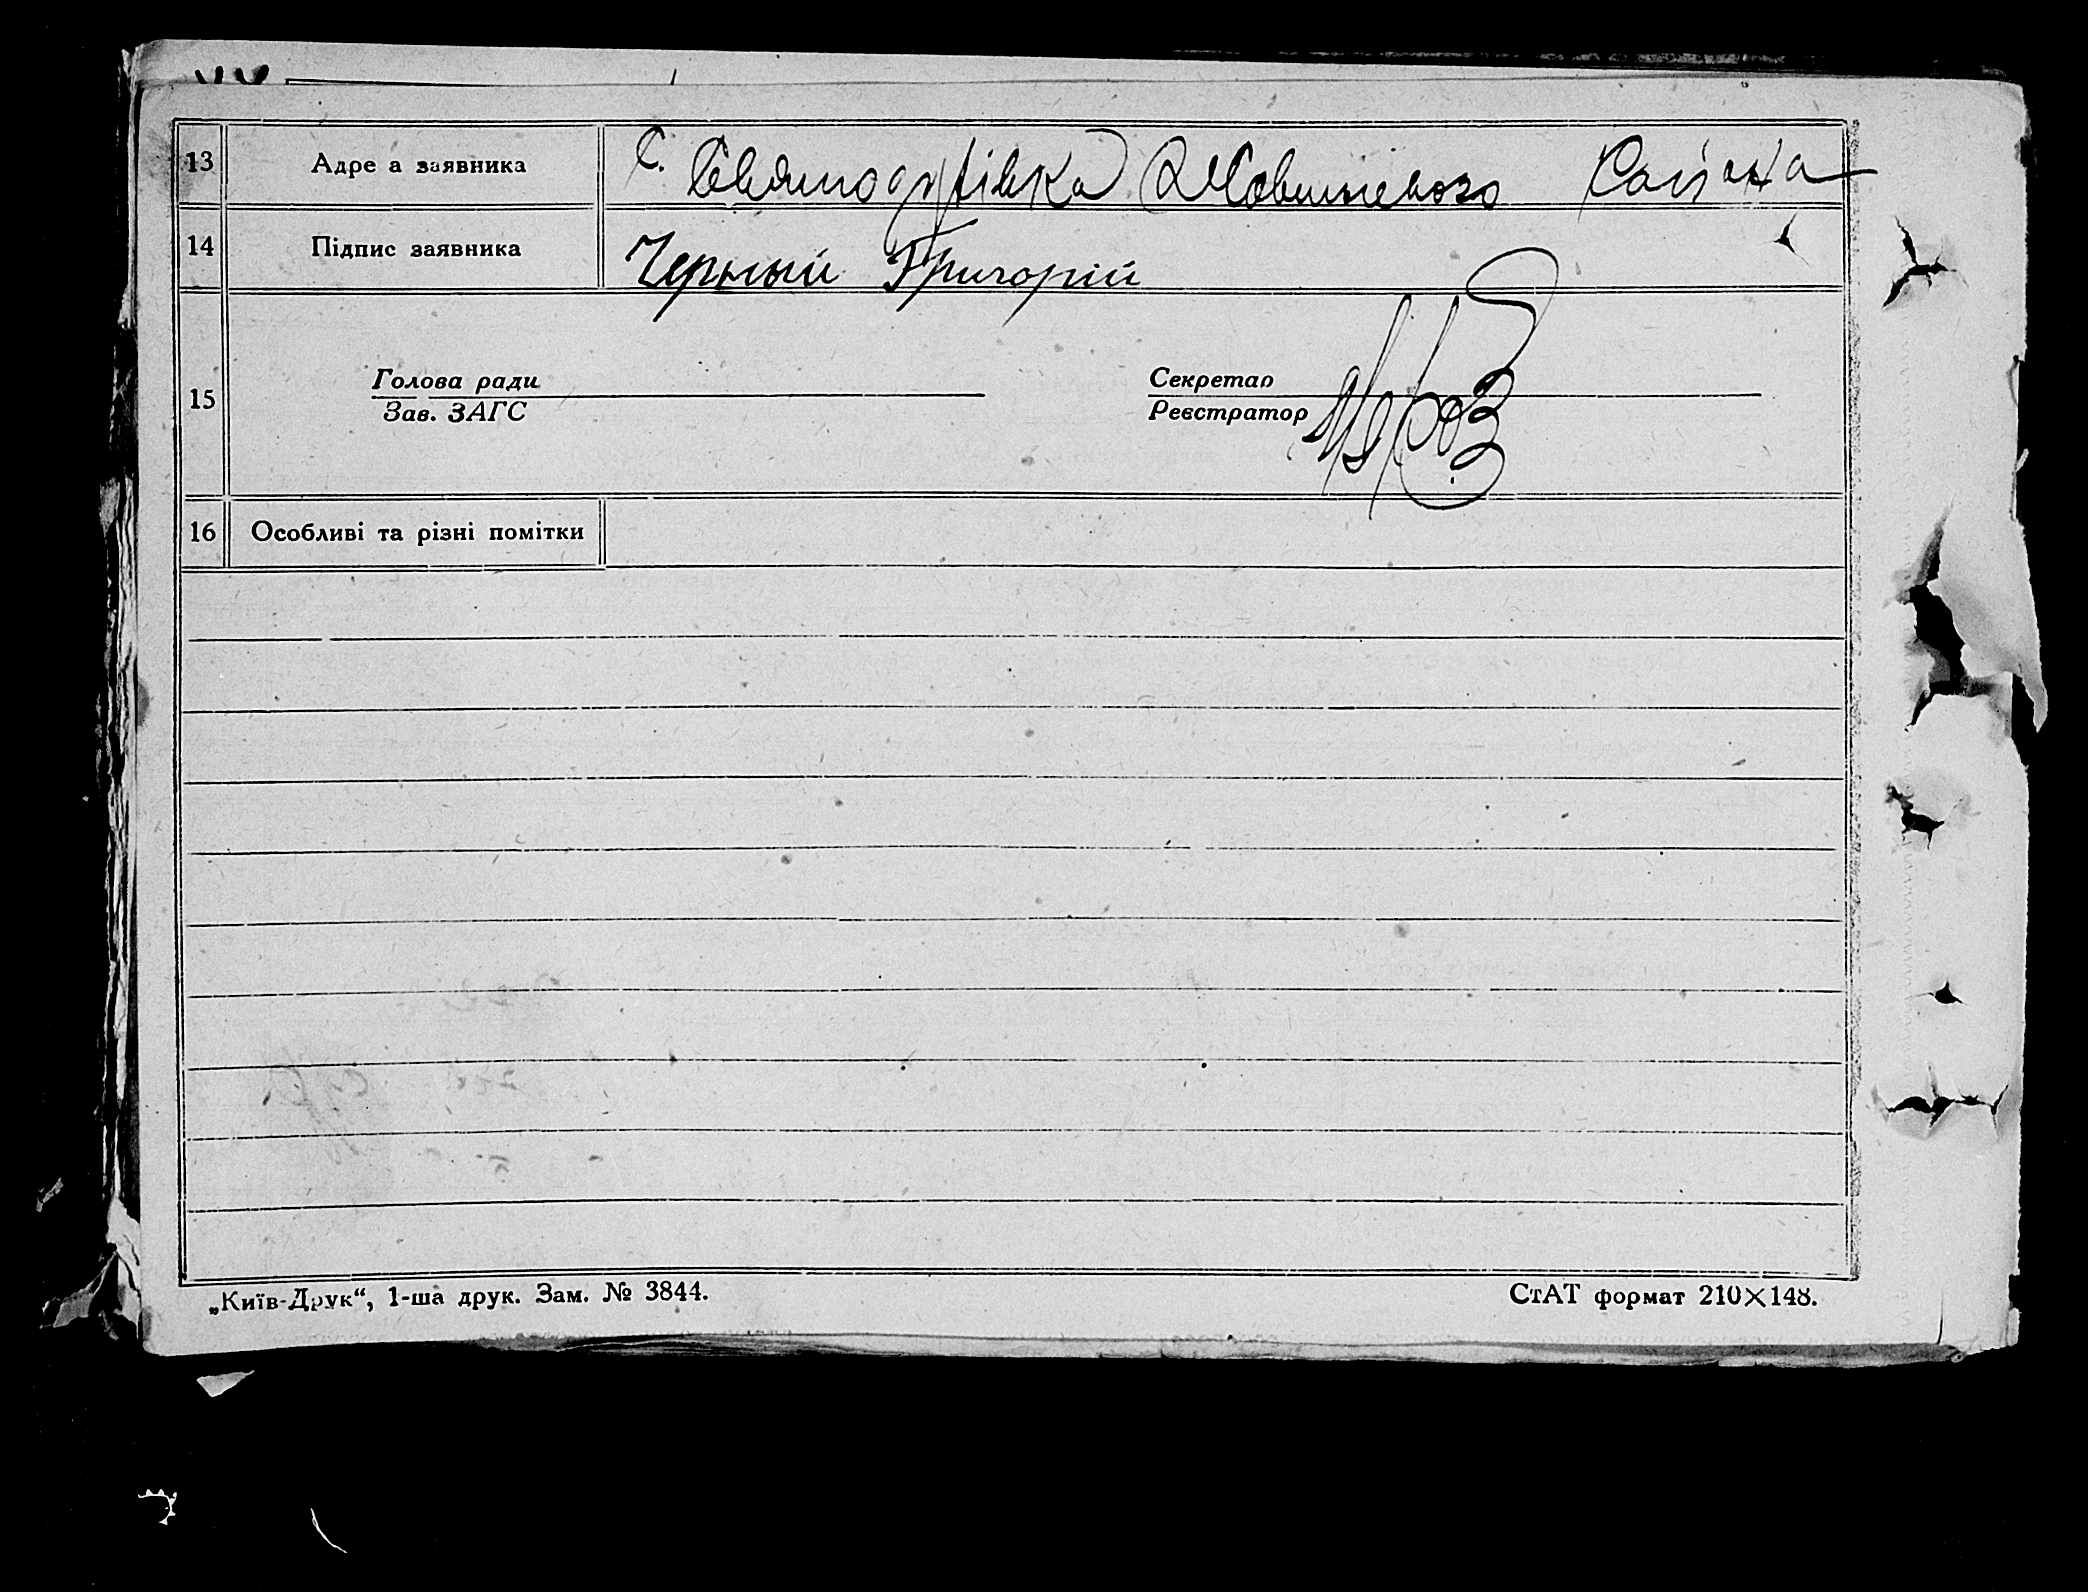 13 Адре а заявника С. Святодухівка Жовтневого Району
14 Підпис заявника Черный Григорій
15 Голова ради
Зав. ЗАГС
Секретар
Реєстратор
16 Особливі та різні помітки
„Київ-Друк“, 1-ша друк. Зам. № 3844.
СтАТ формат 210×148.